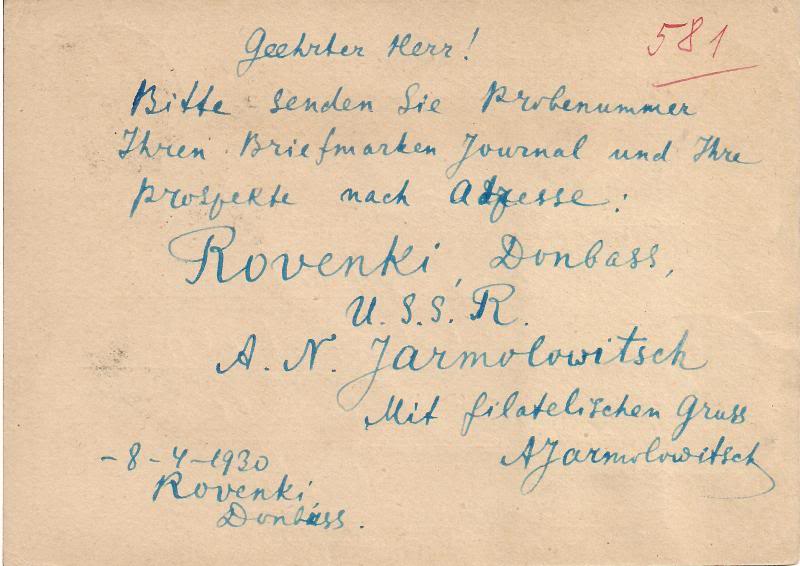 581
Geehrter Herr!
Bitte senden Sie Probenummer
Ihren Briefmarken Journal und Ihre
Prospekte nach Adresse:
Rovenki, Donbass,
U.S.S.R.
A. N. Jarmolowitsch
Mit filatelischen Gruss
AJarmolowitsch
-8-4-1930
Rovenki,
Donbass.